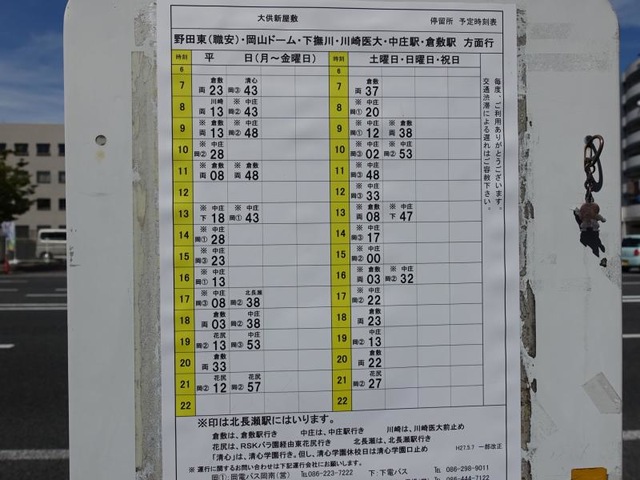 大供新屋敷　停留所　予定時刻表
野田東(職安)・岡山ドーム・下撫川・川崎医大・中庄駅・倉敷駅　方面行
時刻　平　日(月～金曜日)　時刻　土曜日・日曜日・祝日
6　6
7　倉敷 両 23　清心 岡③ 43　7　倉敷 両 37
8　川崎 両 13　※ 中庄 岡② 43　8　※ 中庄 岡① 20
9　※ 倉敷 両 13　※ 中庄 岡② 48　9　※ 中庄 岡① 12　※ 倉敷 両 38
10　※ 中庄 岡② 28　10　※ 中庄 岡③ 02　※ 中庄 岡② 53
11　※ 倉敷 両 08　※ 倉敷 両 48　11　※ 中庄 岡③ 48
12　12　※ 中庄 岡② 33
13　※ 中庄 下 18　※ 中庄 岡① 43　13　※ 倉敷 両 08　※ 中庄 下 47
14　※ 中庄 岡① 28　14　※ 中庄 岡③ 17
15　※ 中庄 岡③ 23　15　※ 中庄 岡② 00
16　※ 中庄 岡① 13　16　※ 倉敷 両 03　※ 中庄 岡② 32
17　※ 中庄 岡③ 08　北長瀬 岡② 38　17　※ 中庄 岡② 22
18　倉敷 両 03　中庄 岡② 38　18　倉敷 両 23
19　花尻 岡② 13　中庄 岡③ 53　19　中庄 岡② 13
20　倉敷 両 33　20　倉敷 両 22
21　花尻 岡② 12　花尻 岡② 57　21　花尻 岡② 27
22　22
毎度、ご利用ありがとうございます。
交通渋滞による遅れはご容赦下さい。
※印は北長瀬駅にはいります。
倉敷は、倉敷駅行き　中庄は、中庄駅行き　川崎は、川崎医大前止め
花尻は、RSKバラ園経由東花尻行き　北長瀬は、北長瀬駅行き
「清心」は、清心学園行き。但し、清心学園休校日は清心学園口止め　H27.5.7 一部改正
※ 運行に関するお問い合わせは下記運行会社にお願いします。
岡①:岡電バス岡南(営)　℡086-223-7222　下:下電バス　℡ 086-298-9011